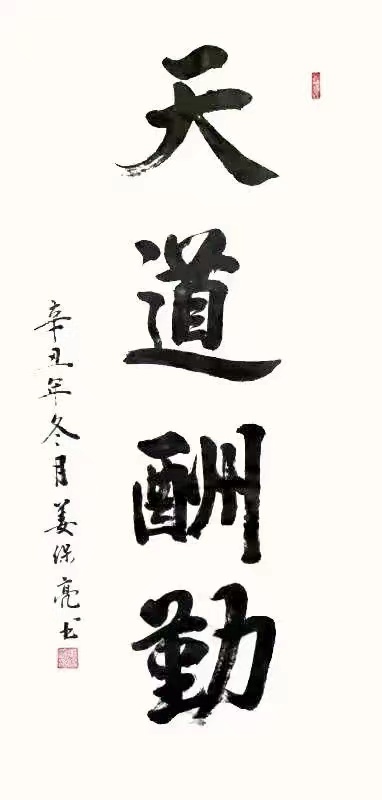 天道酬勤
辛丑年冬月姜保亮书